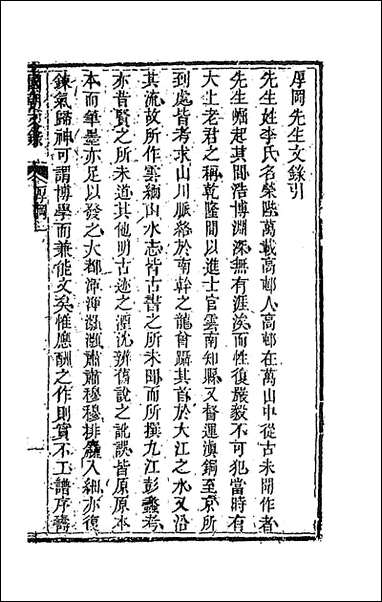 厚岡先生文錄引
先生姓李氏名榮陛萬載高邨人高邨在萬山中從古未聞作者
先生崛起其間浩博淵深無有涯涘而性復嚴毅不可犯當時有
大上老君之稱乾隆間以進士官雲南知縣又督運滇銅至京所
到處皆考求山川脈絡於南幹之龍曾躡其首於大江之水又沿
其流故所作雲緬山水志皆古哲之所未聞而所撰九江彭蠡考
亦昔賢之所未道其他明古迹之湮沈辨舊說之訛誤皆原原本
本而筆墨亦足以發之大都渾渾灝灝肅肅穆穆排奡入細亦復
鍊氣歸神可謂博學而兼能文矣惟應酬之作則實不工譜序壽
國朝文錄
厚岡
一